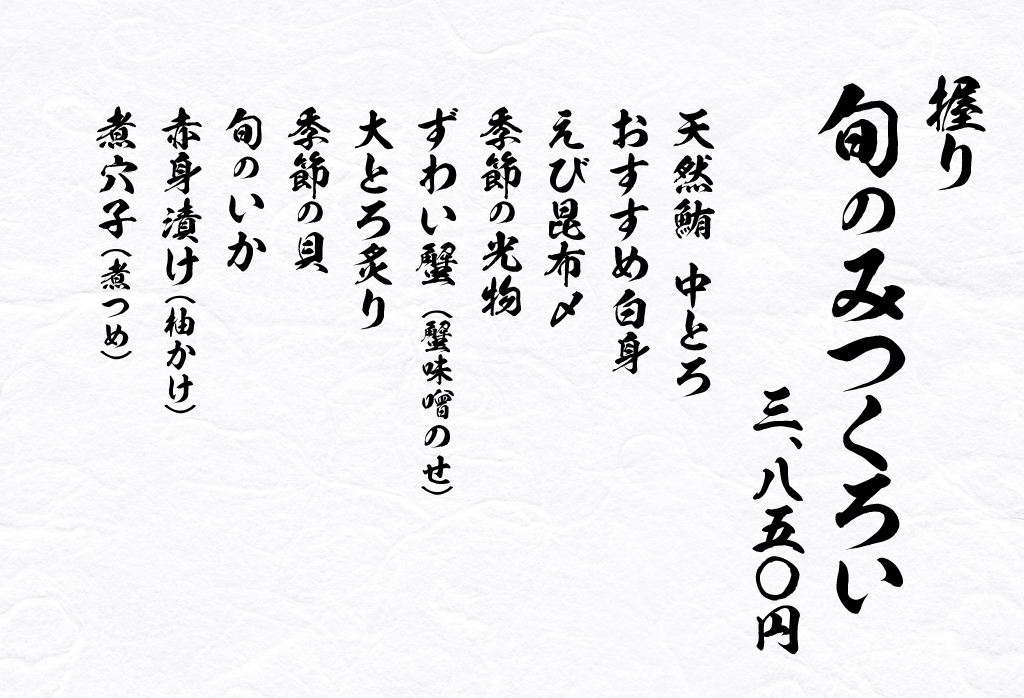 握り
旬のみつくろい
三、八五〇円
天然鮪 中とろ
おすすめ白身
えび昆布〆
季節の光物
ずわい蟹(蟹味噌のせ)
大とろ炙り
季節の貝
旬のいか
赤身漬け(柚かけ)
煮穴子(煮つめ)